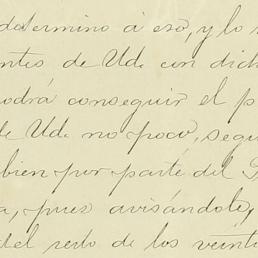 determino á eso, y lo
ntes de Ud. con dich
odrá conseguir el p
de Ud. no poco, segu
bien por parte del P
a, pues avisándole,
del resto de los veinti